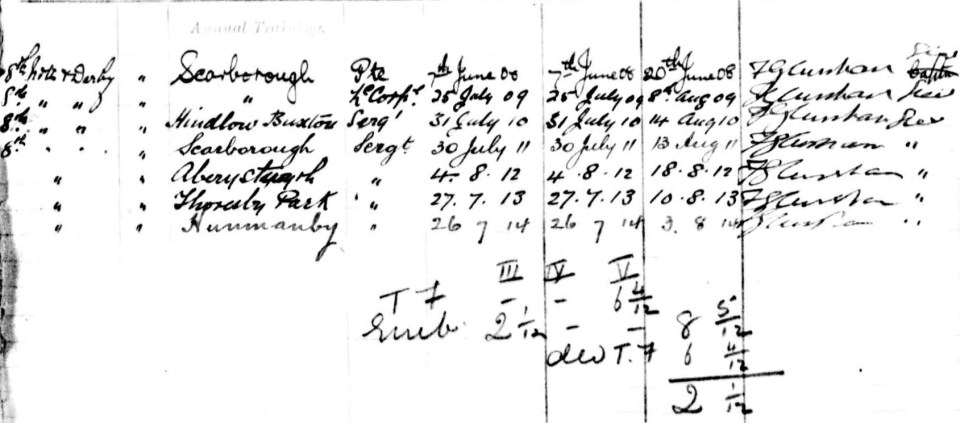 Annual Training.
8th Notts & Derby " Scarborough Pte 7th June 08 7th June 08 20th June 08
8th " " " " Le Corpl. 25 July 09 25 July 09 8th Aug 09
8th " " " Hindlow Buxton Sergt 31 July 10 31 July 10 14 Aug 10
8th " " " Scarborough Sergt. 30 July 11 30 July 11 13 Aug 11 "
" " Aberystwyth " 4. 8. 12 4. 8. 12 18. 8. 12 "
" " Thoresby Park " 27. 7. 13 27. 7. 13 10. 8. 13 "
" " Hunmanby " 26 7 14 26 7 14 3. 8 14 "
III IV V
T 7 - - 6 4/12
Emb. 2 1/12 - - 8 5/12
T. 7 6 4/12
2 1/12